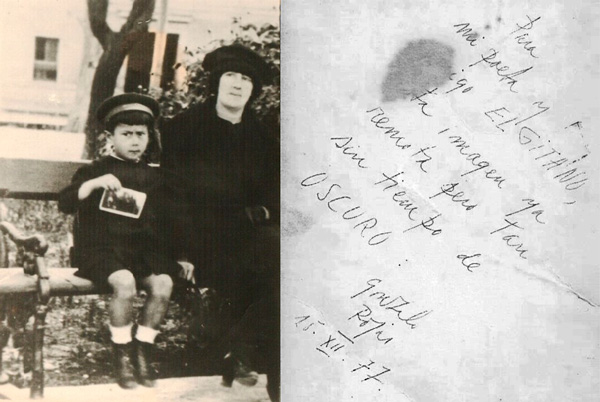 Para
mi poeta y
igo EL GITANO,
ta imagen ya
remota pero tan
sin tiempo de
OSCURO.
Gonzalo
Rojas
15.XII.77.